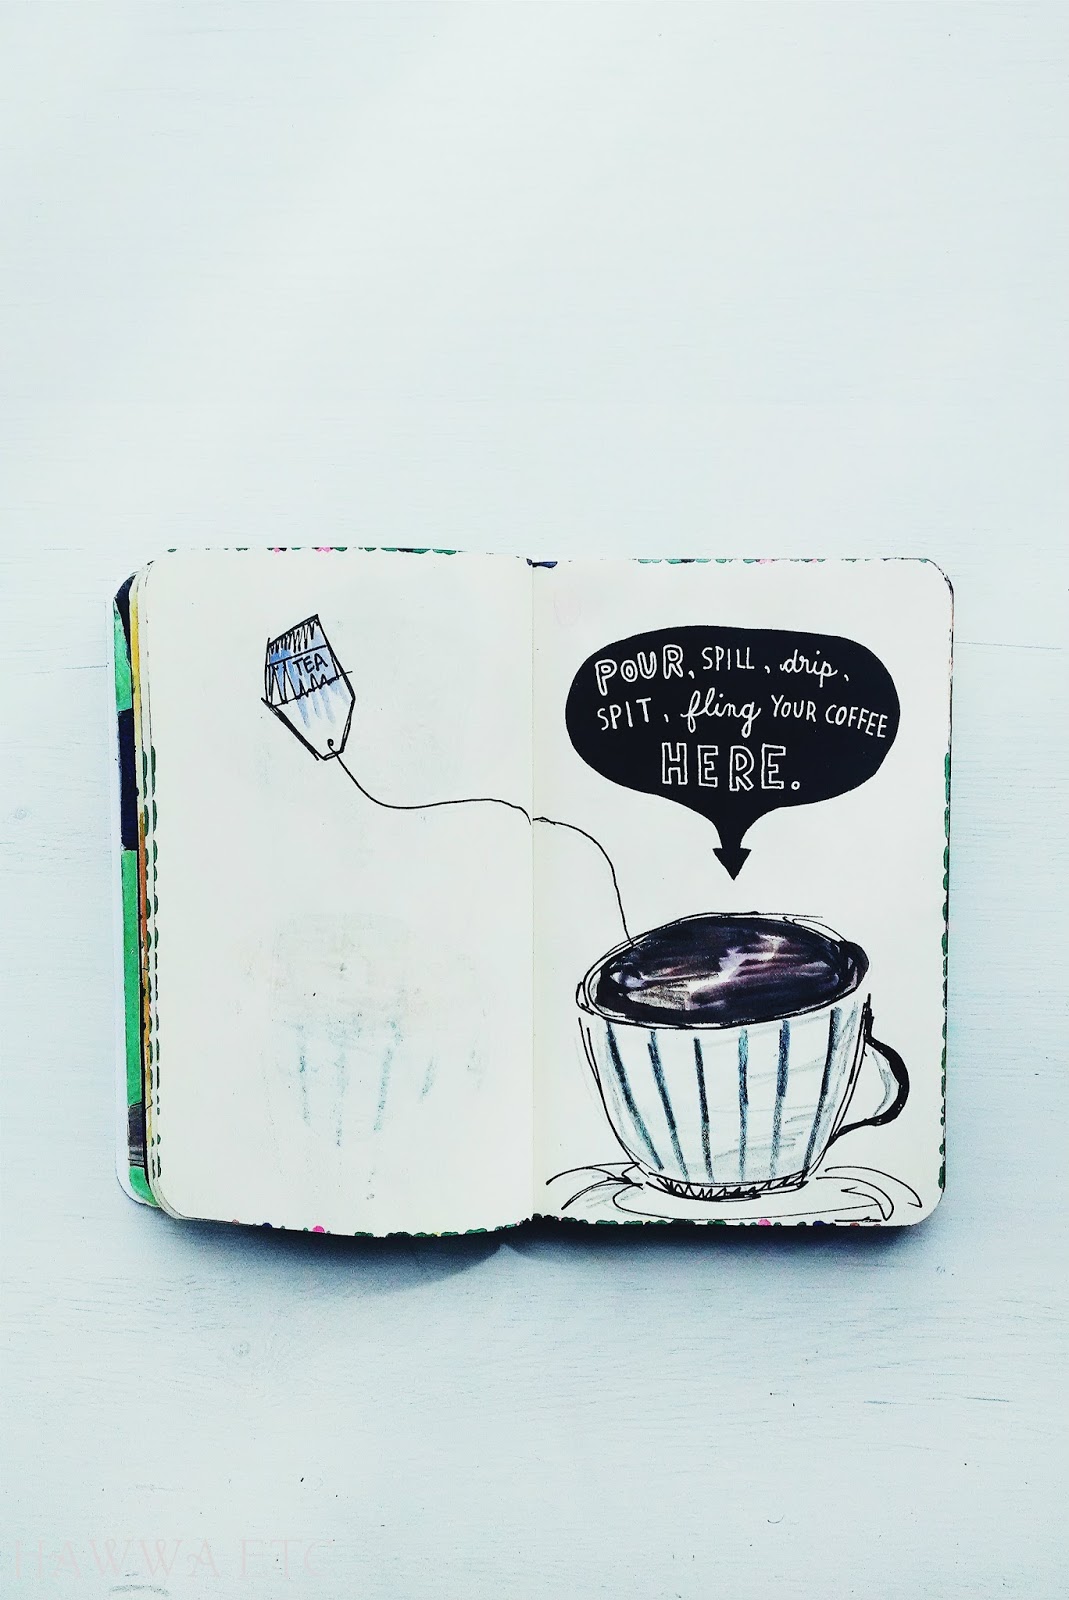 TEA
POUR, SPILL, drip,
SPIT, fling YOUR COFFEE
HERE.